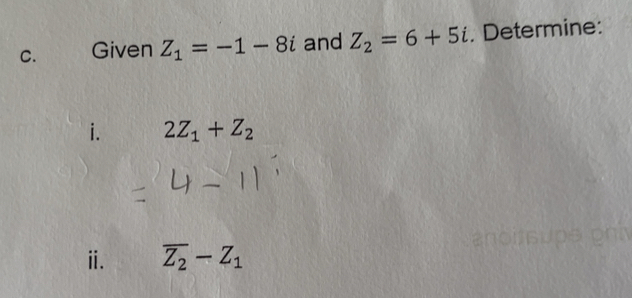 c. Given Z₁ = −1 − 8i and Z₂ = 6 + 5i. Determine:
i. 2Z₁ + Z₂
= 4 − 11i
ii. Z̅₂ − Z₁